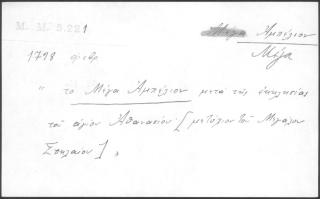 M. M. 5.221
Μέγα Ἀμπέλιον
Μέγα
1798
" τὸ Μέγα Ἀμπέλιον μετὰ τῆς ἐκκλησίας
τοῦ ἁγίου Ἀθανασίου [μετόχιον τοῦ Μεγάλου
Σπηλαίου] "